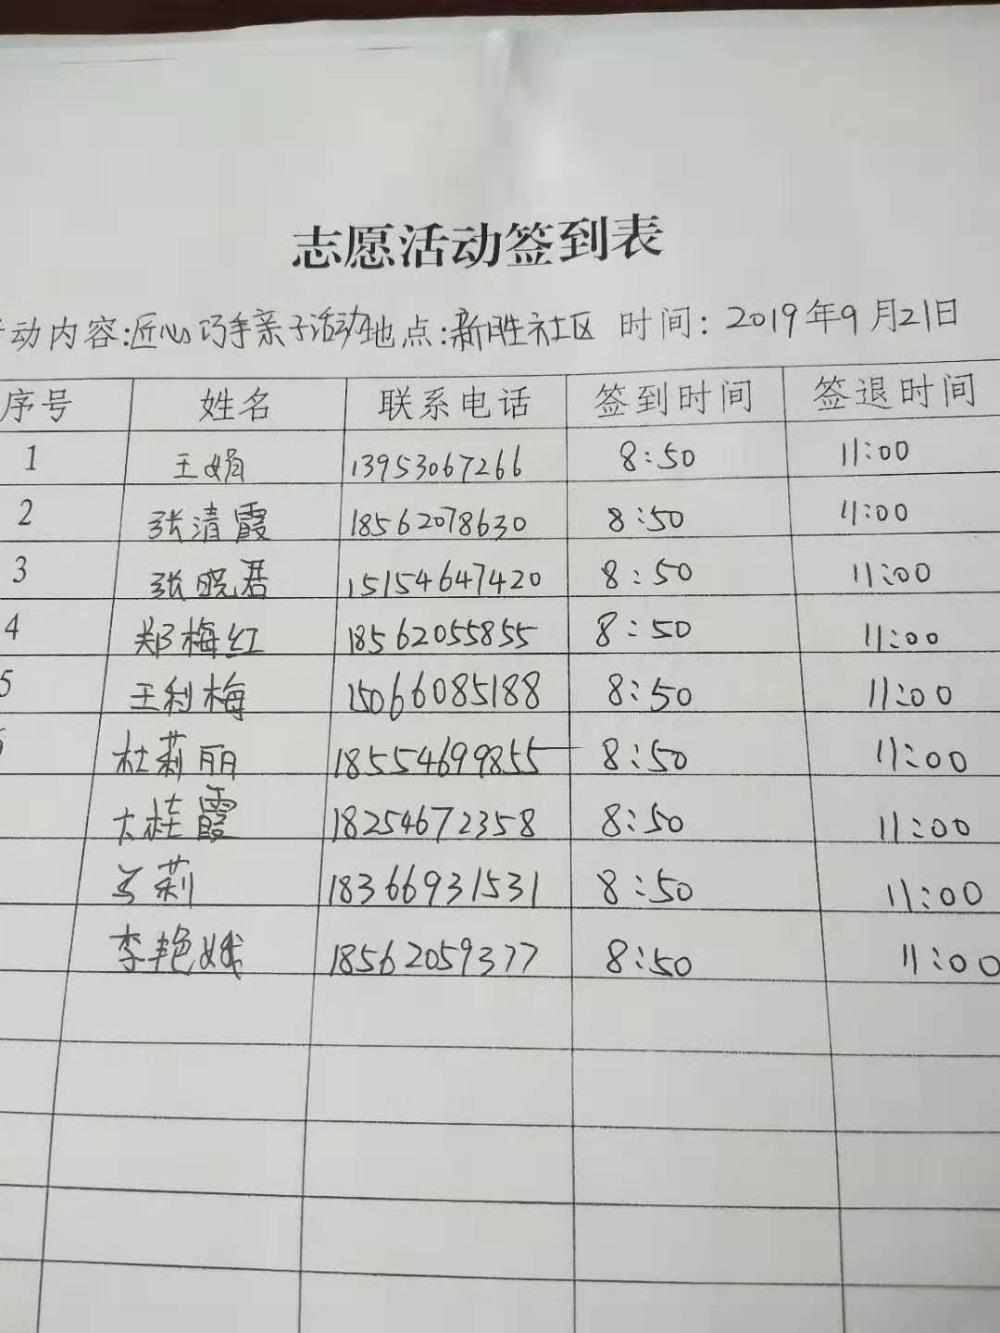 志愿活动签到表
动内容:匠心巧手亲子活动地点:新胜社区 时间: 2019年9月21日
序号 姓名 联系电话 签到时间 签退时间
1 王娟 13953067266 8:50 11:00
2 张清霞 18562078630 8:50 11:00
3 张晓君 15154647420 8:50 11:00
4 郑梅红 18562055855 8:50 11:00
5 王利梅 15066085188 8:50 11:00
杜莉丽 18554699855 8:50 11:00
桂霞 18254672358 8:50 11:00
莉 18366931531 8:50 11:00
李艳娥 18562059377 8:50 11:00